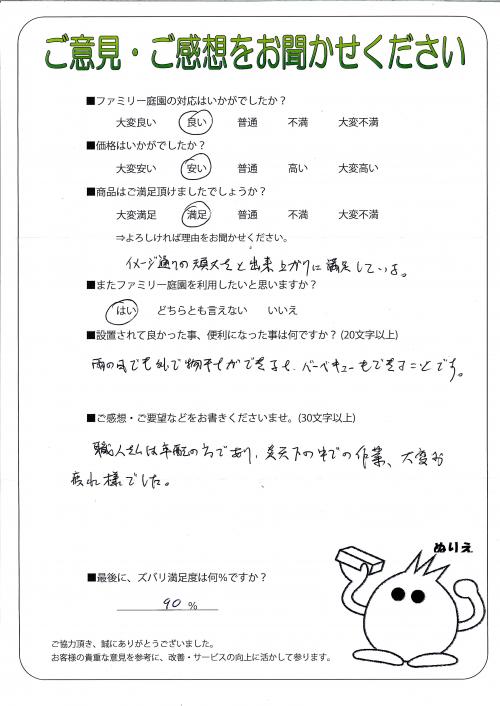 ご意見・ご感想をお聞かせください
■ファミリー庭園の対応はいかがでしたか？
大変良い 良い 普通 不満 大変不満
■価格はいかがでしたか？
大変安い 安い 普通 高い 大変高い
■商品はご満足頂けましたでしょうか？
大変満足 満足 普通 不満 大変不満
⇒よろしければ理由をお聞かせください。
イメージ通りの頑丈さと出来上がりに満足している。
■またファミリー庭園を利用したいと思いますか？
はい どちらとも言えない いいえ
■設置されて良かった事、便利になった事は何ですか？(20文字以上)
雨の日でも外で物干しができるし、バーベキューもできることです。
■ご感想・ご要望などをお書きくださいませ。(30文字以上)
職人さんは年配の方であり、炎天下の中での作業、大変お
疲れ様でした。
ぬりえ
■最後に、ズバリ満足度は何％ですか？
90 ％
ご協力頂き、誠にありがとうございました。
お客様の貴重な意見を参考に、改善・サービスの向上に活かして参ります。